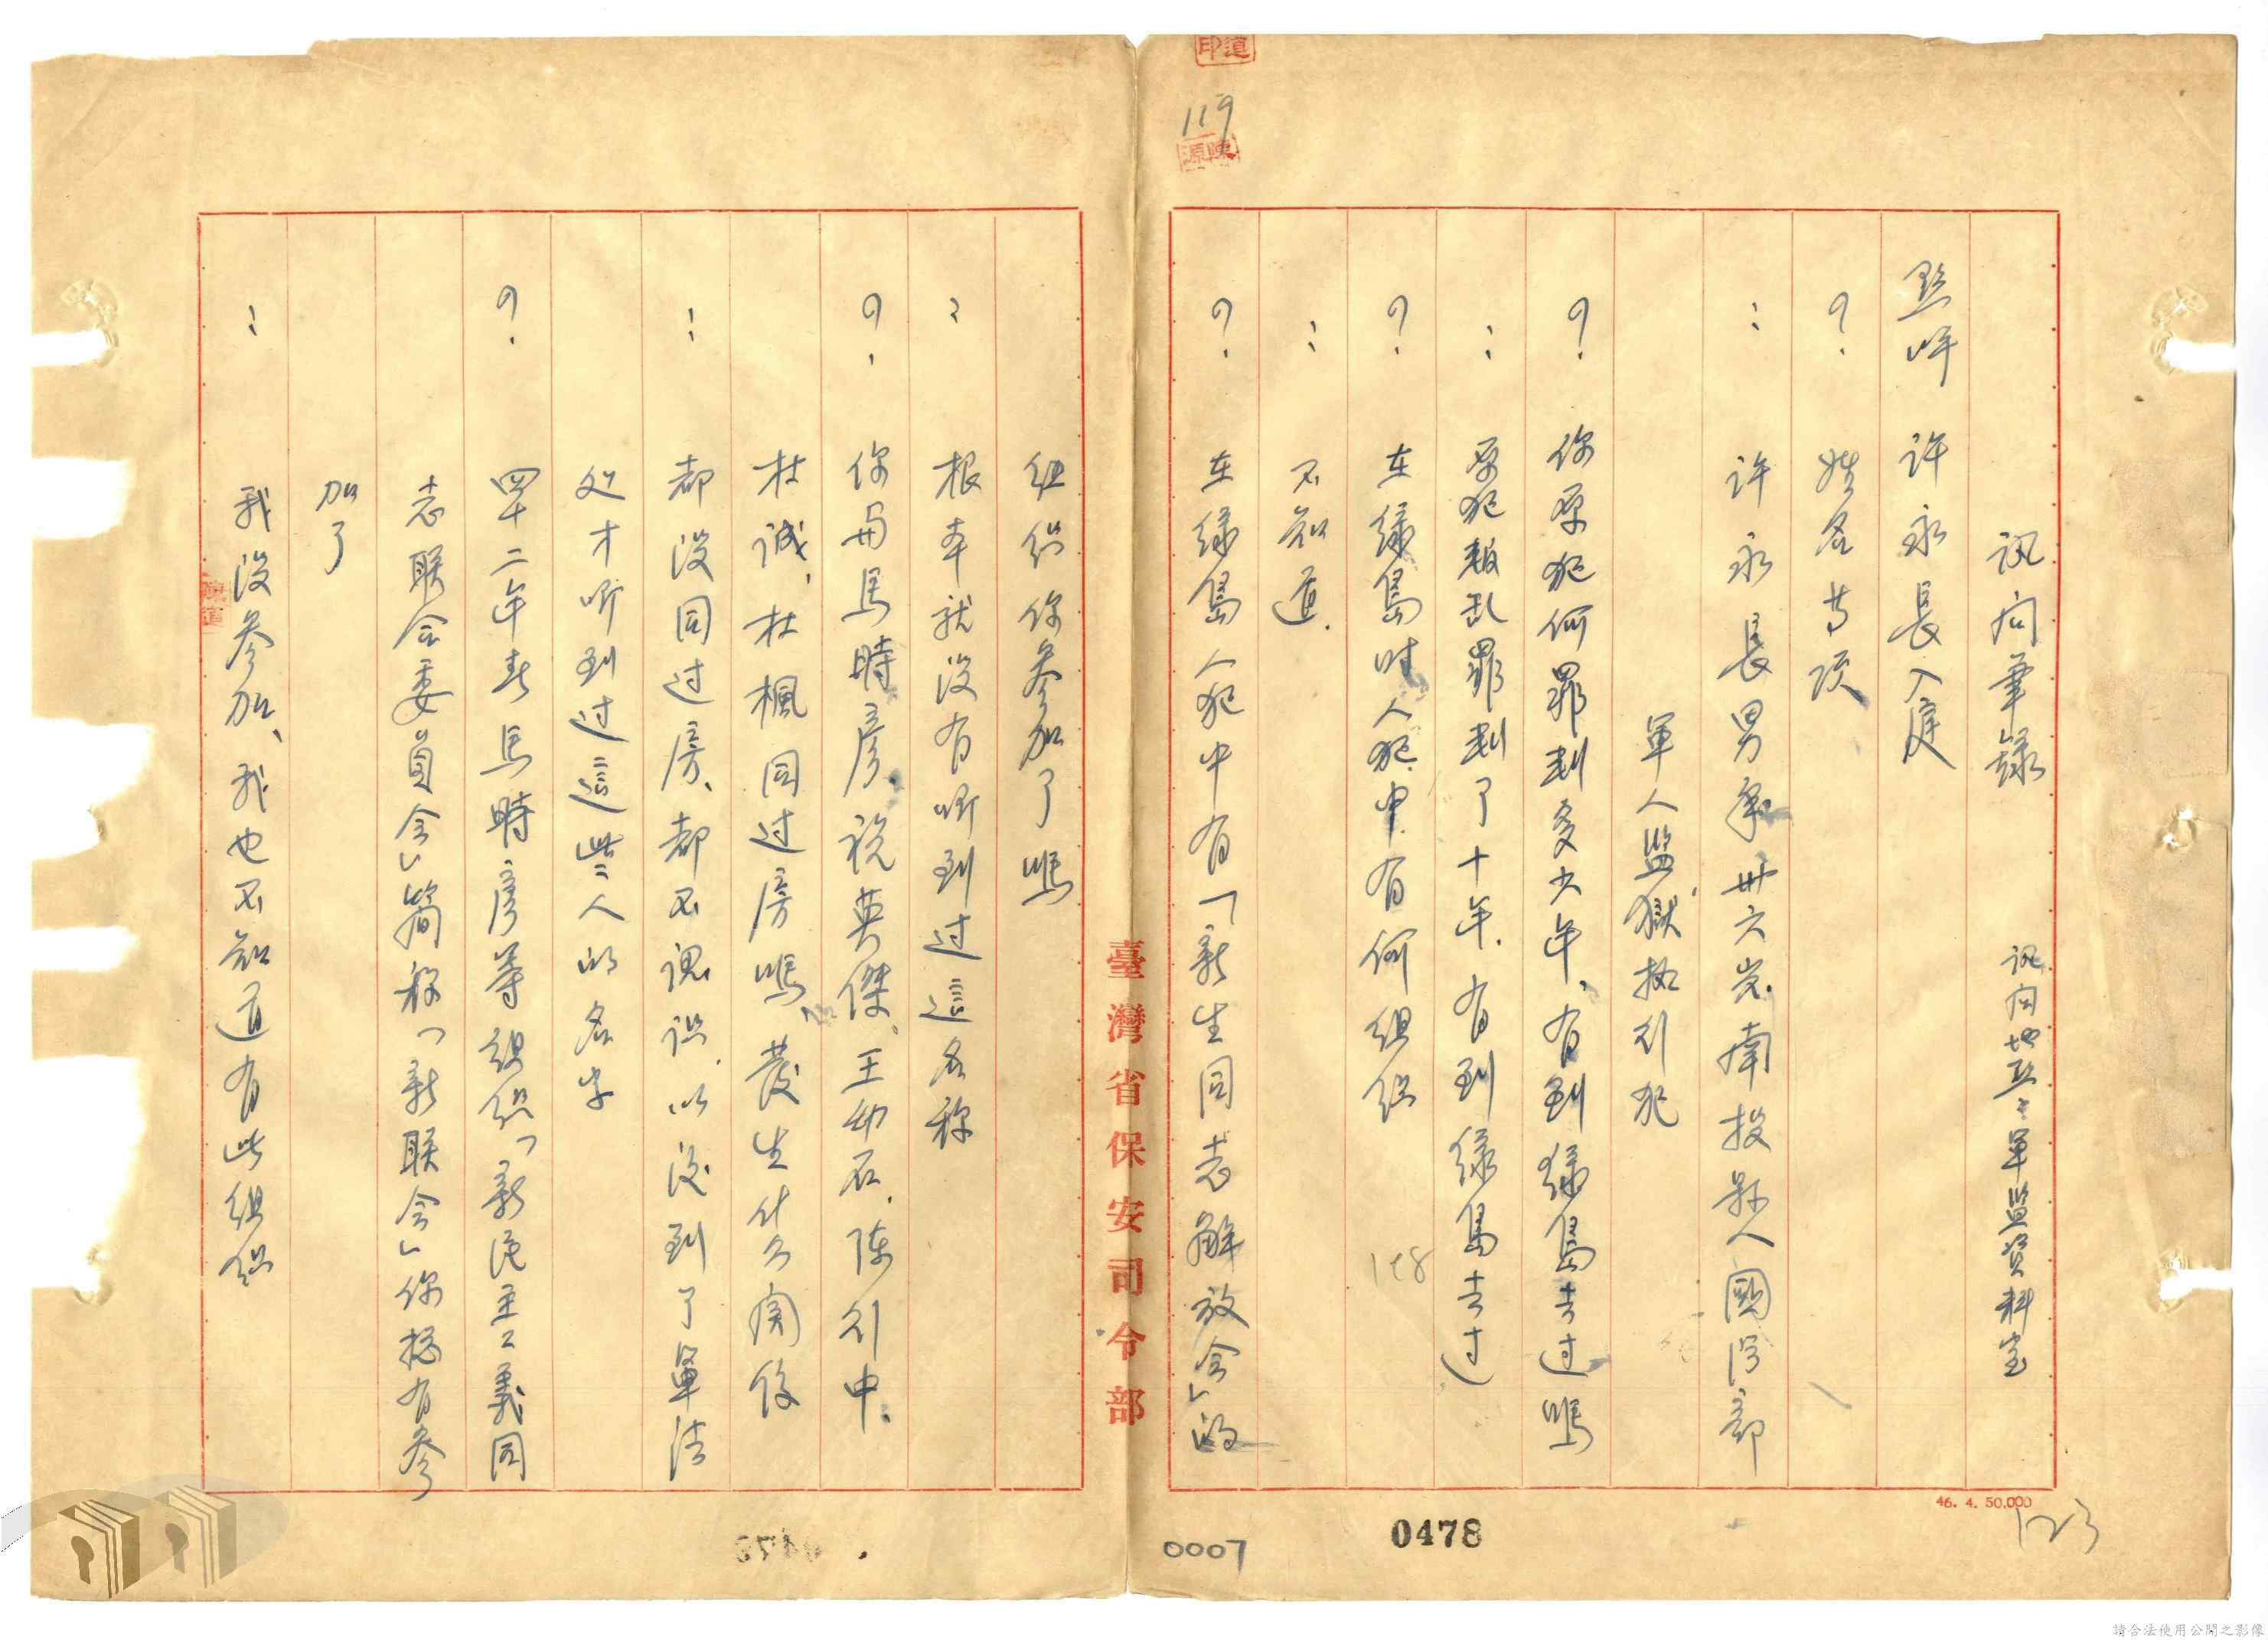 道印
119
陳源
訊問筆錄
訊問地點:軍監資料室
點呼 許永長入庭
? 姓名等項
: 許永長男年卅六歲南投縣人國防部
軍人監獄执行犯
? 你原犯何罪判多少年、有到綠島去过嗎
: 原犯叛乱罪判了十年.有到綠島去过
? 在綠島时人犯中有何组织
: 不知道.
? 在綠島人犯中有「新生同志解放会」的
臺灣省保安司令部
组织你参加了嗎
: 根本就没有听到过這名称
? 你与馬時彦.說英傑、王幼石.陳行中.
杜誠、杜楓同过房嗎、發生什么関係
: 都没同过房、都不認识.以後到了軍法
处才听到过這些人的名字
? 四十二年春馬時彦等组织「新民主主義同
志联合委員会」簡称「新联会」你據有参
加了
: 我没参加、我也不知道有此组织
158
46. 4. 50.000
123
0478
0007
請合法使用公開之影像